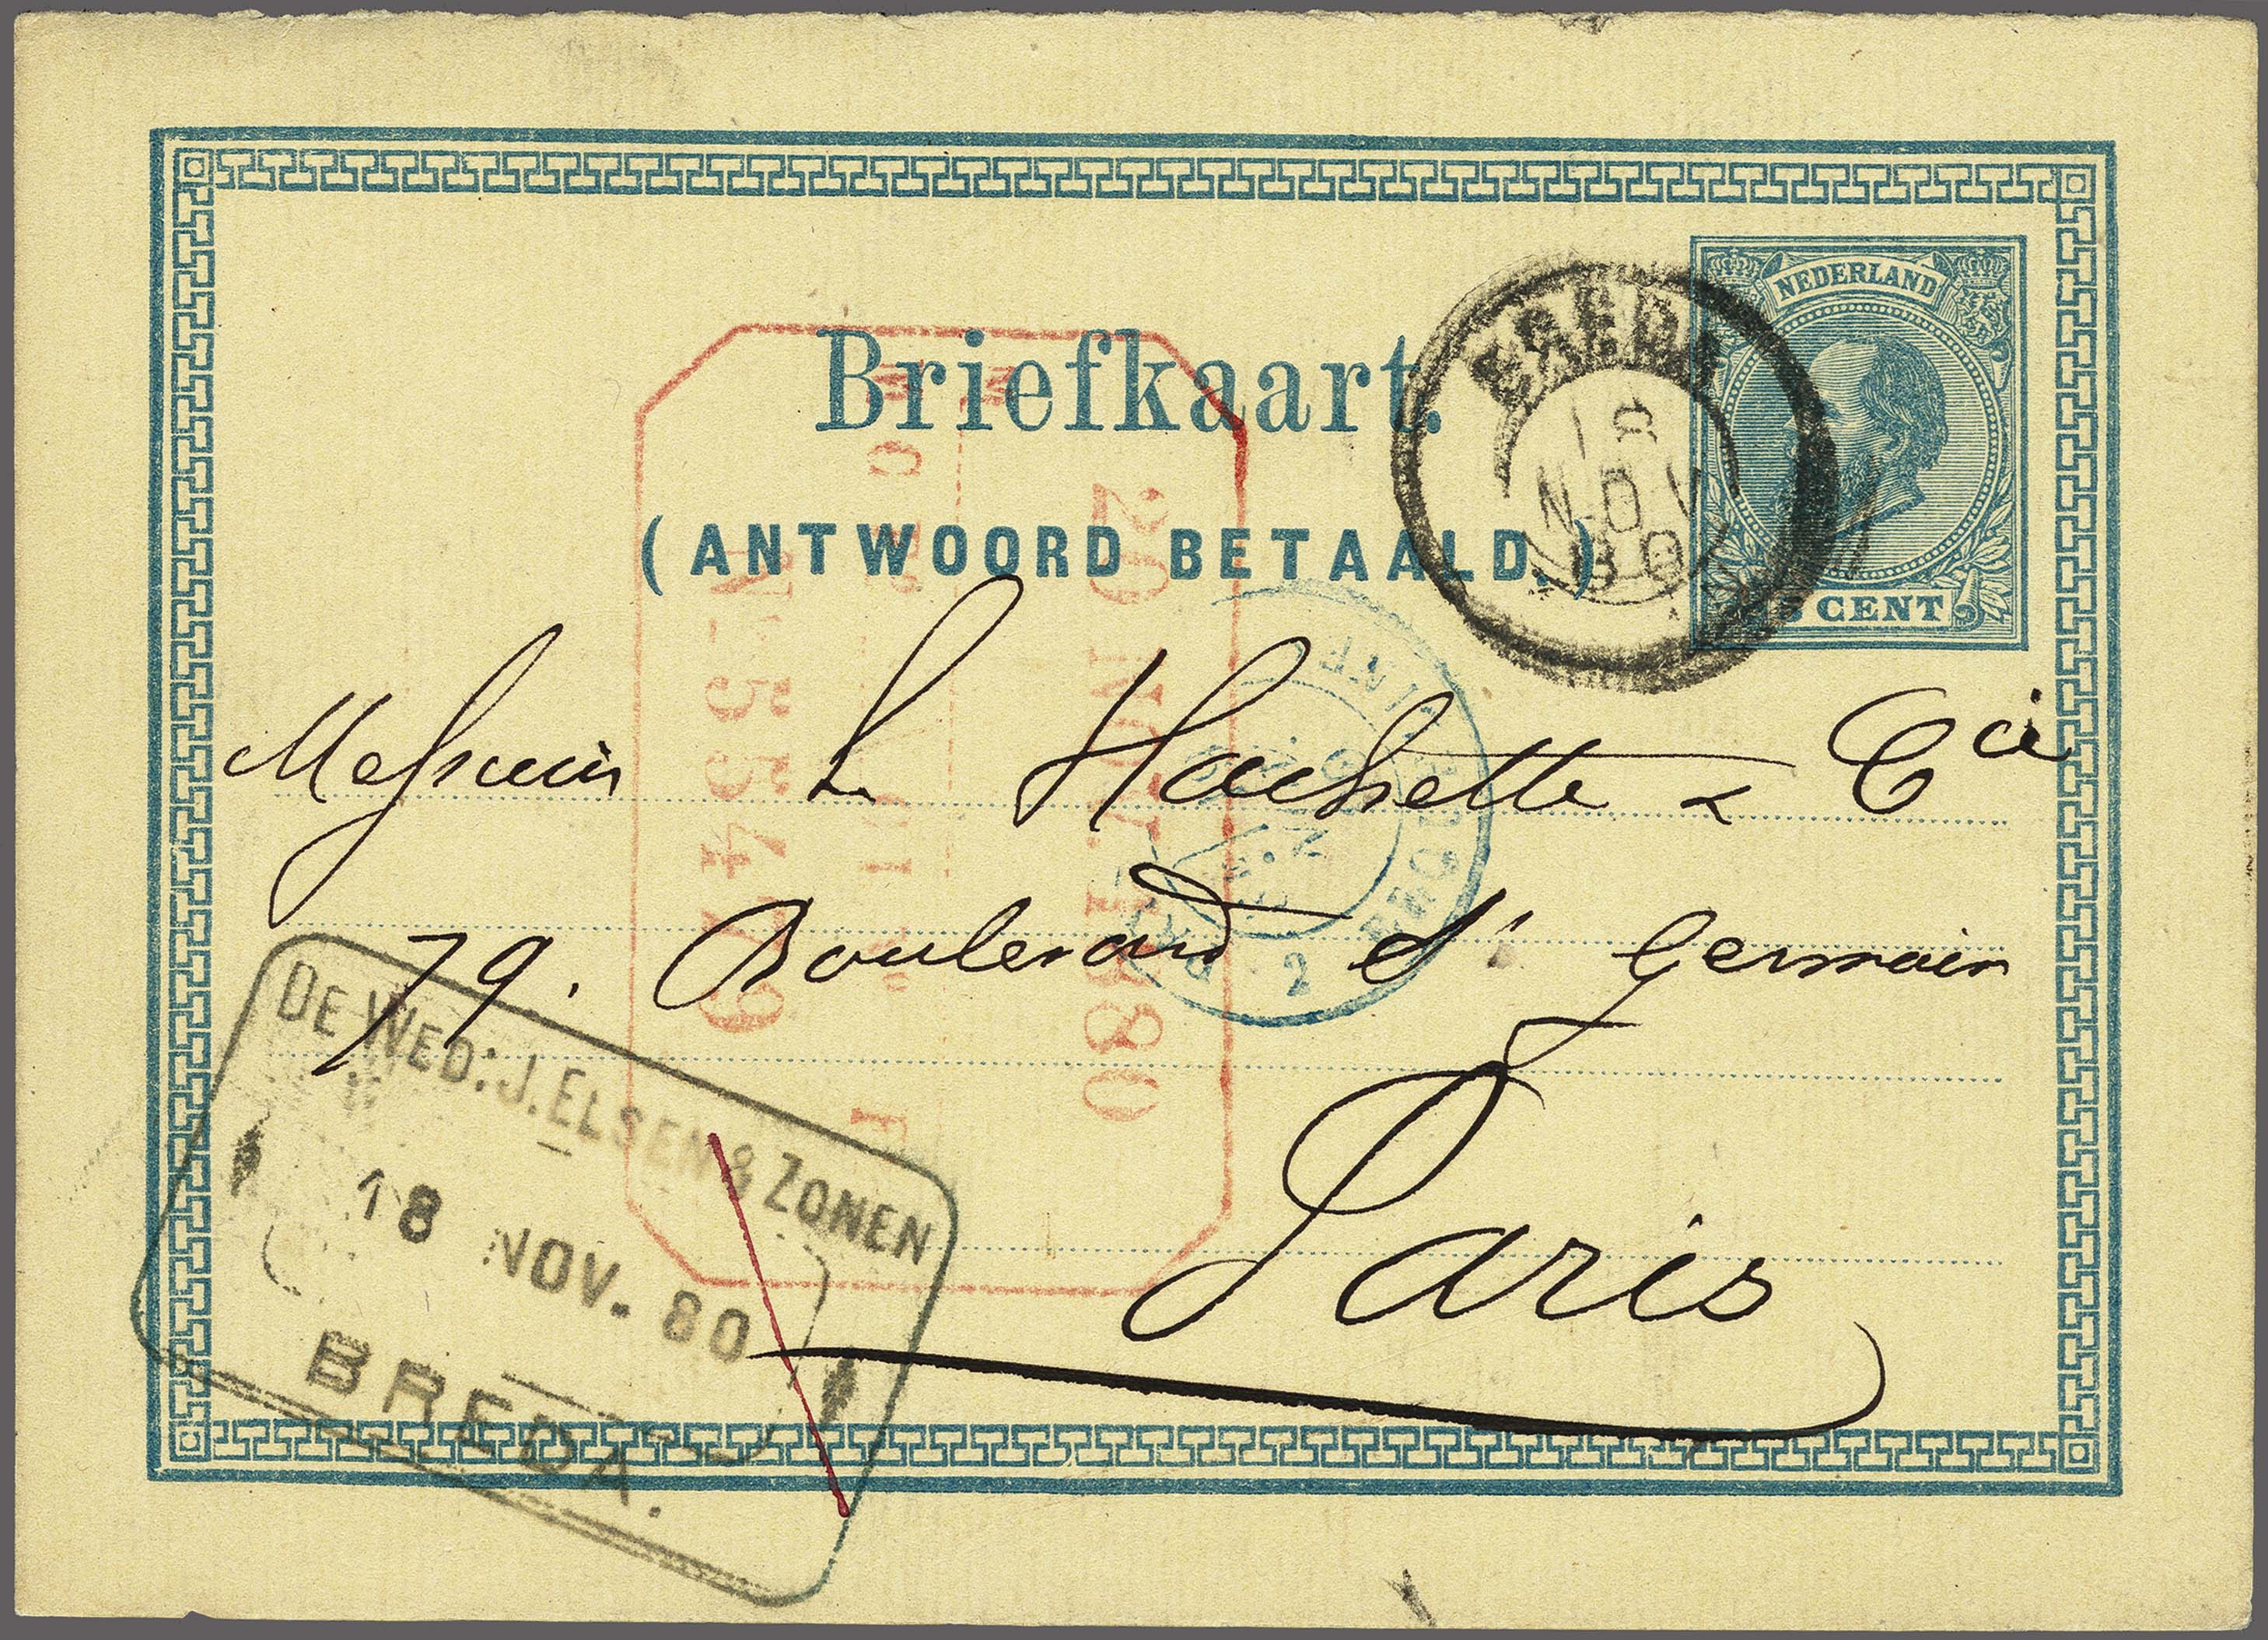 Briefkaart.
(ANTWOORD BETAALD.)
NEDERLAND
5 CENT
BREDA
18
NOV
80
Messieurs L Hachette & Cie
79. Boulevard St Germain
Paris
DE WED: J. ELSEN & ZONEN
18 NOV. 80
BREDA.
20 NOV. 1880
No 55479
PARIS
2